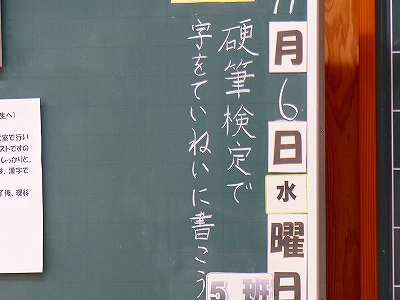 11月6日水曜日
硬筆検定で
字をていねいに書こう
5班
生へ)
室で行い
ストですの
しっかりと、
は、漢字で
了後、理科